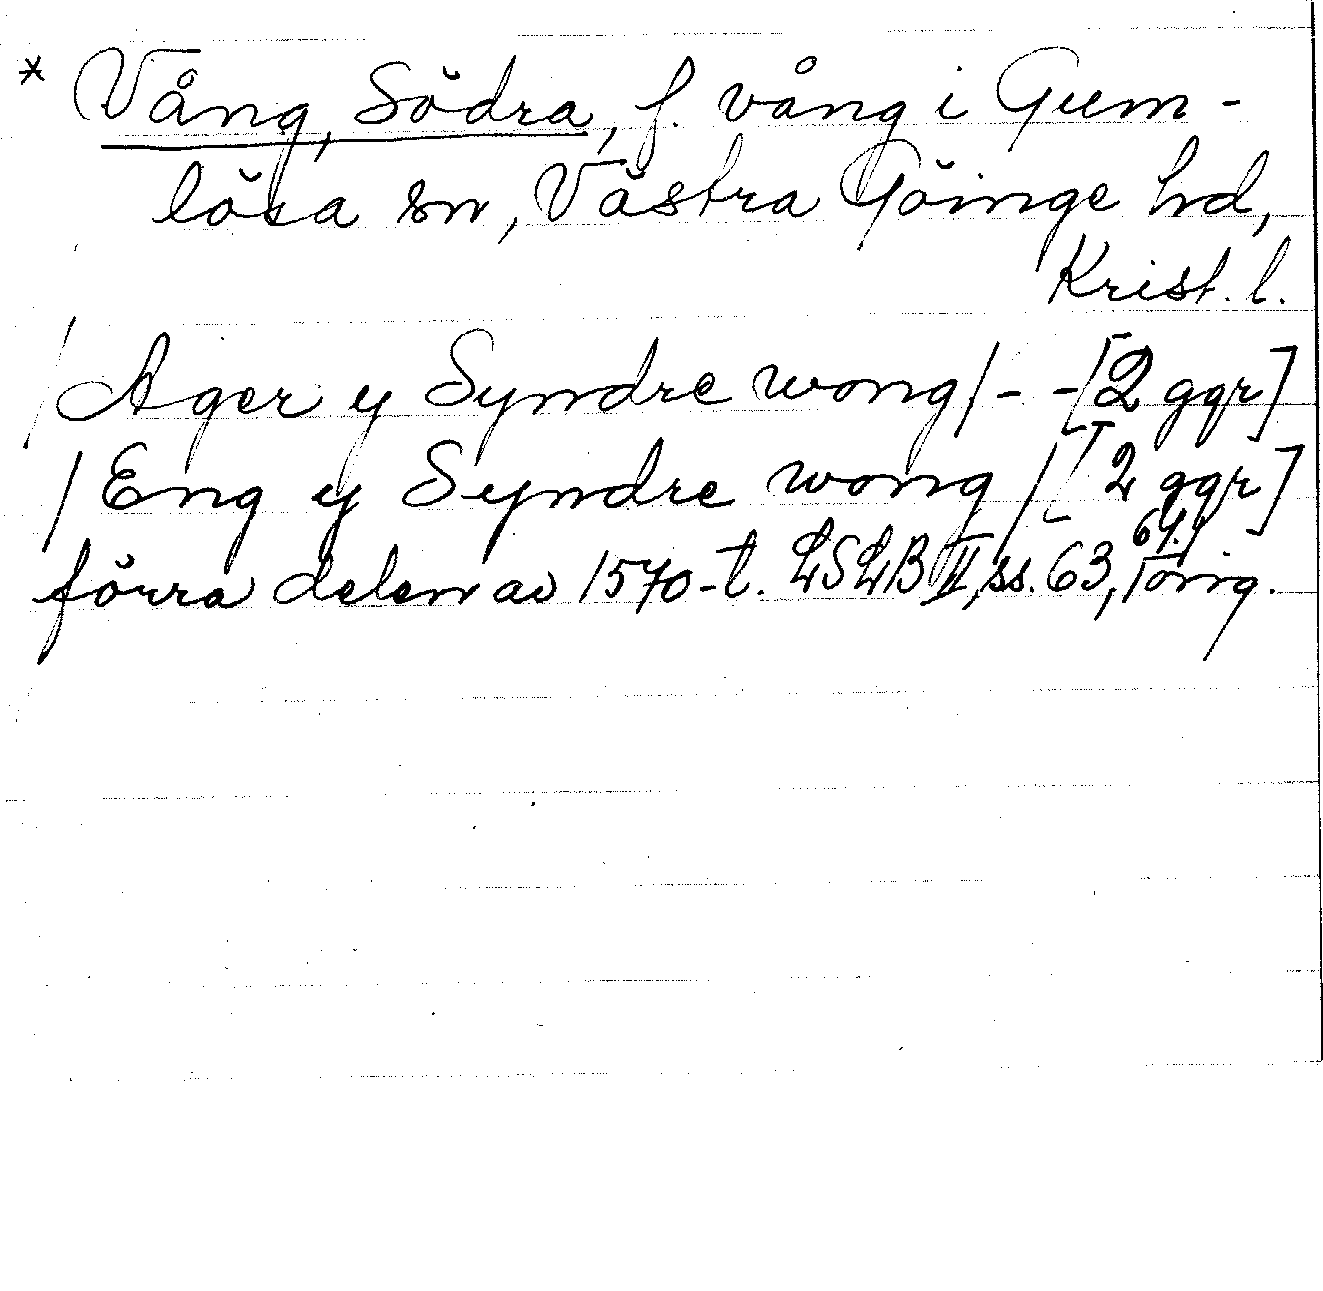 * Vång, Södra, f. vång i Gum-
lösa sn, Västra Göinge hd,
Krist. l.
/Ager y Syndre wong/ - - [2 ggr]
/Eng y Syndre wong/ [2 ggr]
förra delen av 1570-t. LSLB II, ss. 63, 64, orig.